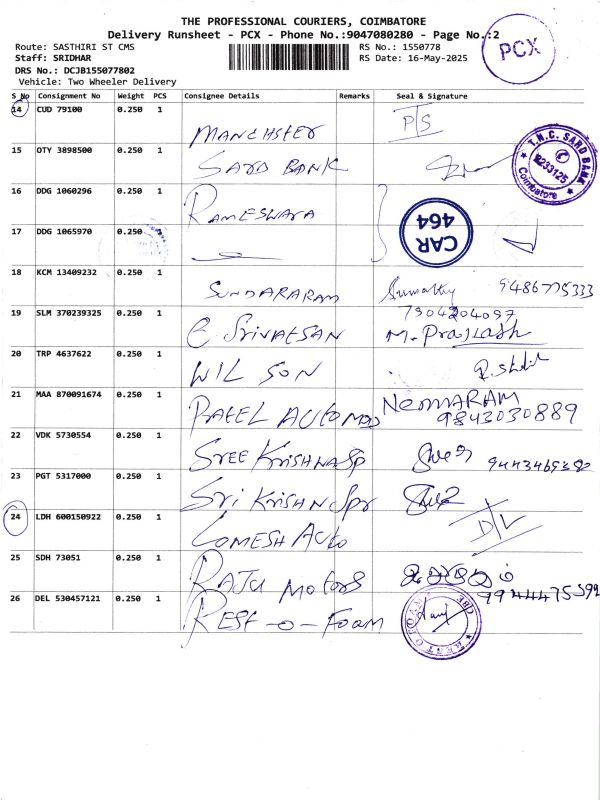 THE PROFESSIONAL COURIERS, COIMBATORE
Delivery Runsheet - PCX - Phone No.:9047080280 - Page No.:2
PCX
Route: SASTHIRI ST CMS
RS No.: 1550778
Staff: SRIDHAR
RS Date: 16-May-2025
DRS No.: DCJB155077802
Vehicle: Two Wheeler Delivery
S No Consignment No Weight PCS Consignee Details Remarks Seal & Signature
14 CUD 79100 0.250 1 MANCHSTER P/S
15 OTY 3898500 0.250 1 SARD BANK
T.N.C. SARD BANK
2233125
Coimbatore
16 DDG 1060296 0.250 1 RAMESWARA
CAR
464
17 DDG 1065970 0.250 1
18 KCM 13409232 0.250 1 SUNDARARAM Sumathy 9486775333
19 SLM 370239325 0.250 1 C SRIVATSAN 7904204097
M. Prakash
20 TRP 4637622 0.250 1 WILSON
21 MAA 870091674 0.250 1 PATEL AUTOMOD NEMARAM
9843030889
22 VDK 5730554 0.250 1 SREE KRISHNA SP 9443465380
23 PGT 5317000 0.250 1 SRI KRISHN SPR
24 LDH 600150922 0.250 1 LOMESH AUTO D/L
25 SDH 73051 0.250 1 RAJU MOTORS
9944475592
26 DEL 530457121 0.250 1 REST-O-FOAM